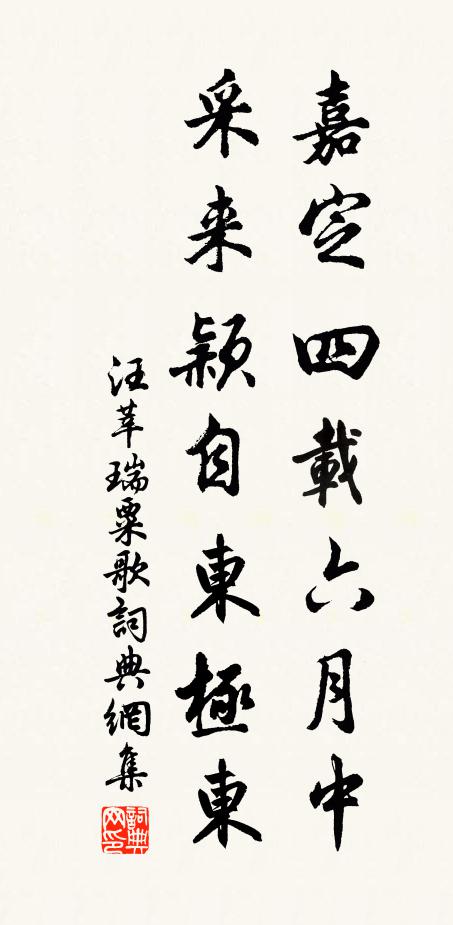 嘉定四載六月中
采来穎自東極東
汪莘瑞粟歌詞典網集
詞典网印